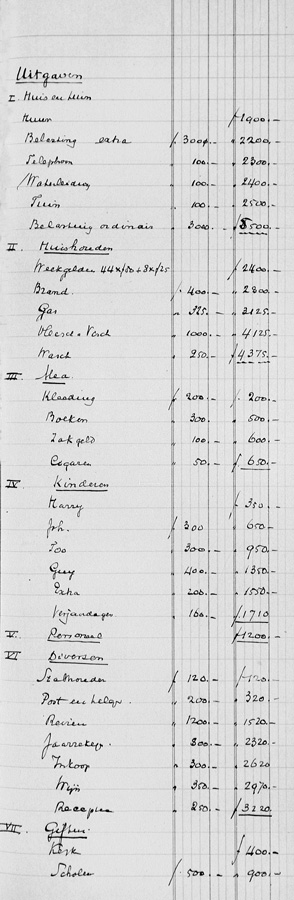 Uitgaven
I Huis en tuin
Huur f 1900.–
Belasting extra f 300.– „ 2200.–
Telephoon „ 100.– „ 2300.–
Waterleiding „ 100.– „ 2400.–
Tuin „ 100.– „ 2500.–
Belasting ordinair „ 3000.– f 5500.–
II. Huishouden
Weekgelden 44 x f 50 + 8 x f 25 f 2400.–
Brand. f 400.– „ 2800.–
Gas „ 325.– „ 3125.–
Vleesch + Visch „ 1000.– „ 4125.–
Wasch „ 250.– f 4375.–
III. Mea
Kleeding f 200.– f 200.–
Boeken „ 300.– „ 500.–
Zakgeld „ 100.– „ 600.–
Cogaren „ 50.– f 650.–
IV. Kinderen
Harry f 350.–
Joh. f 300 „ 650.–
Too „ 300.– „ 950.–
Guy „ 400.– „ 1350.–
Extra „ 200.– „ 1550.–
Verjaardagen „ 160.– f 1710
V. Personeel f 1200.–
VI Diversen
Stalhouder f 120.– f 120.–
Post en telegr. „ 200.– „ 320.–
Reizen „ 1200.– „ 1520.–
Jaarrekeg. „ 800.– „ 2320.–
Inkoop „ 300.– „ 2620
Wijn „ 350.– „ 2970.–
Recepten „ 250.– f 3220.–
VII. Giften.
Kerk f 400.–
Scholen f 500.– „ 900.–